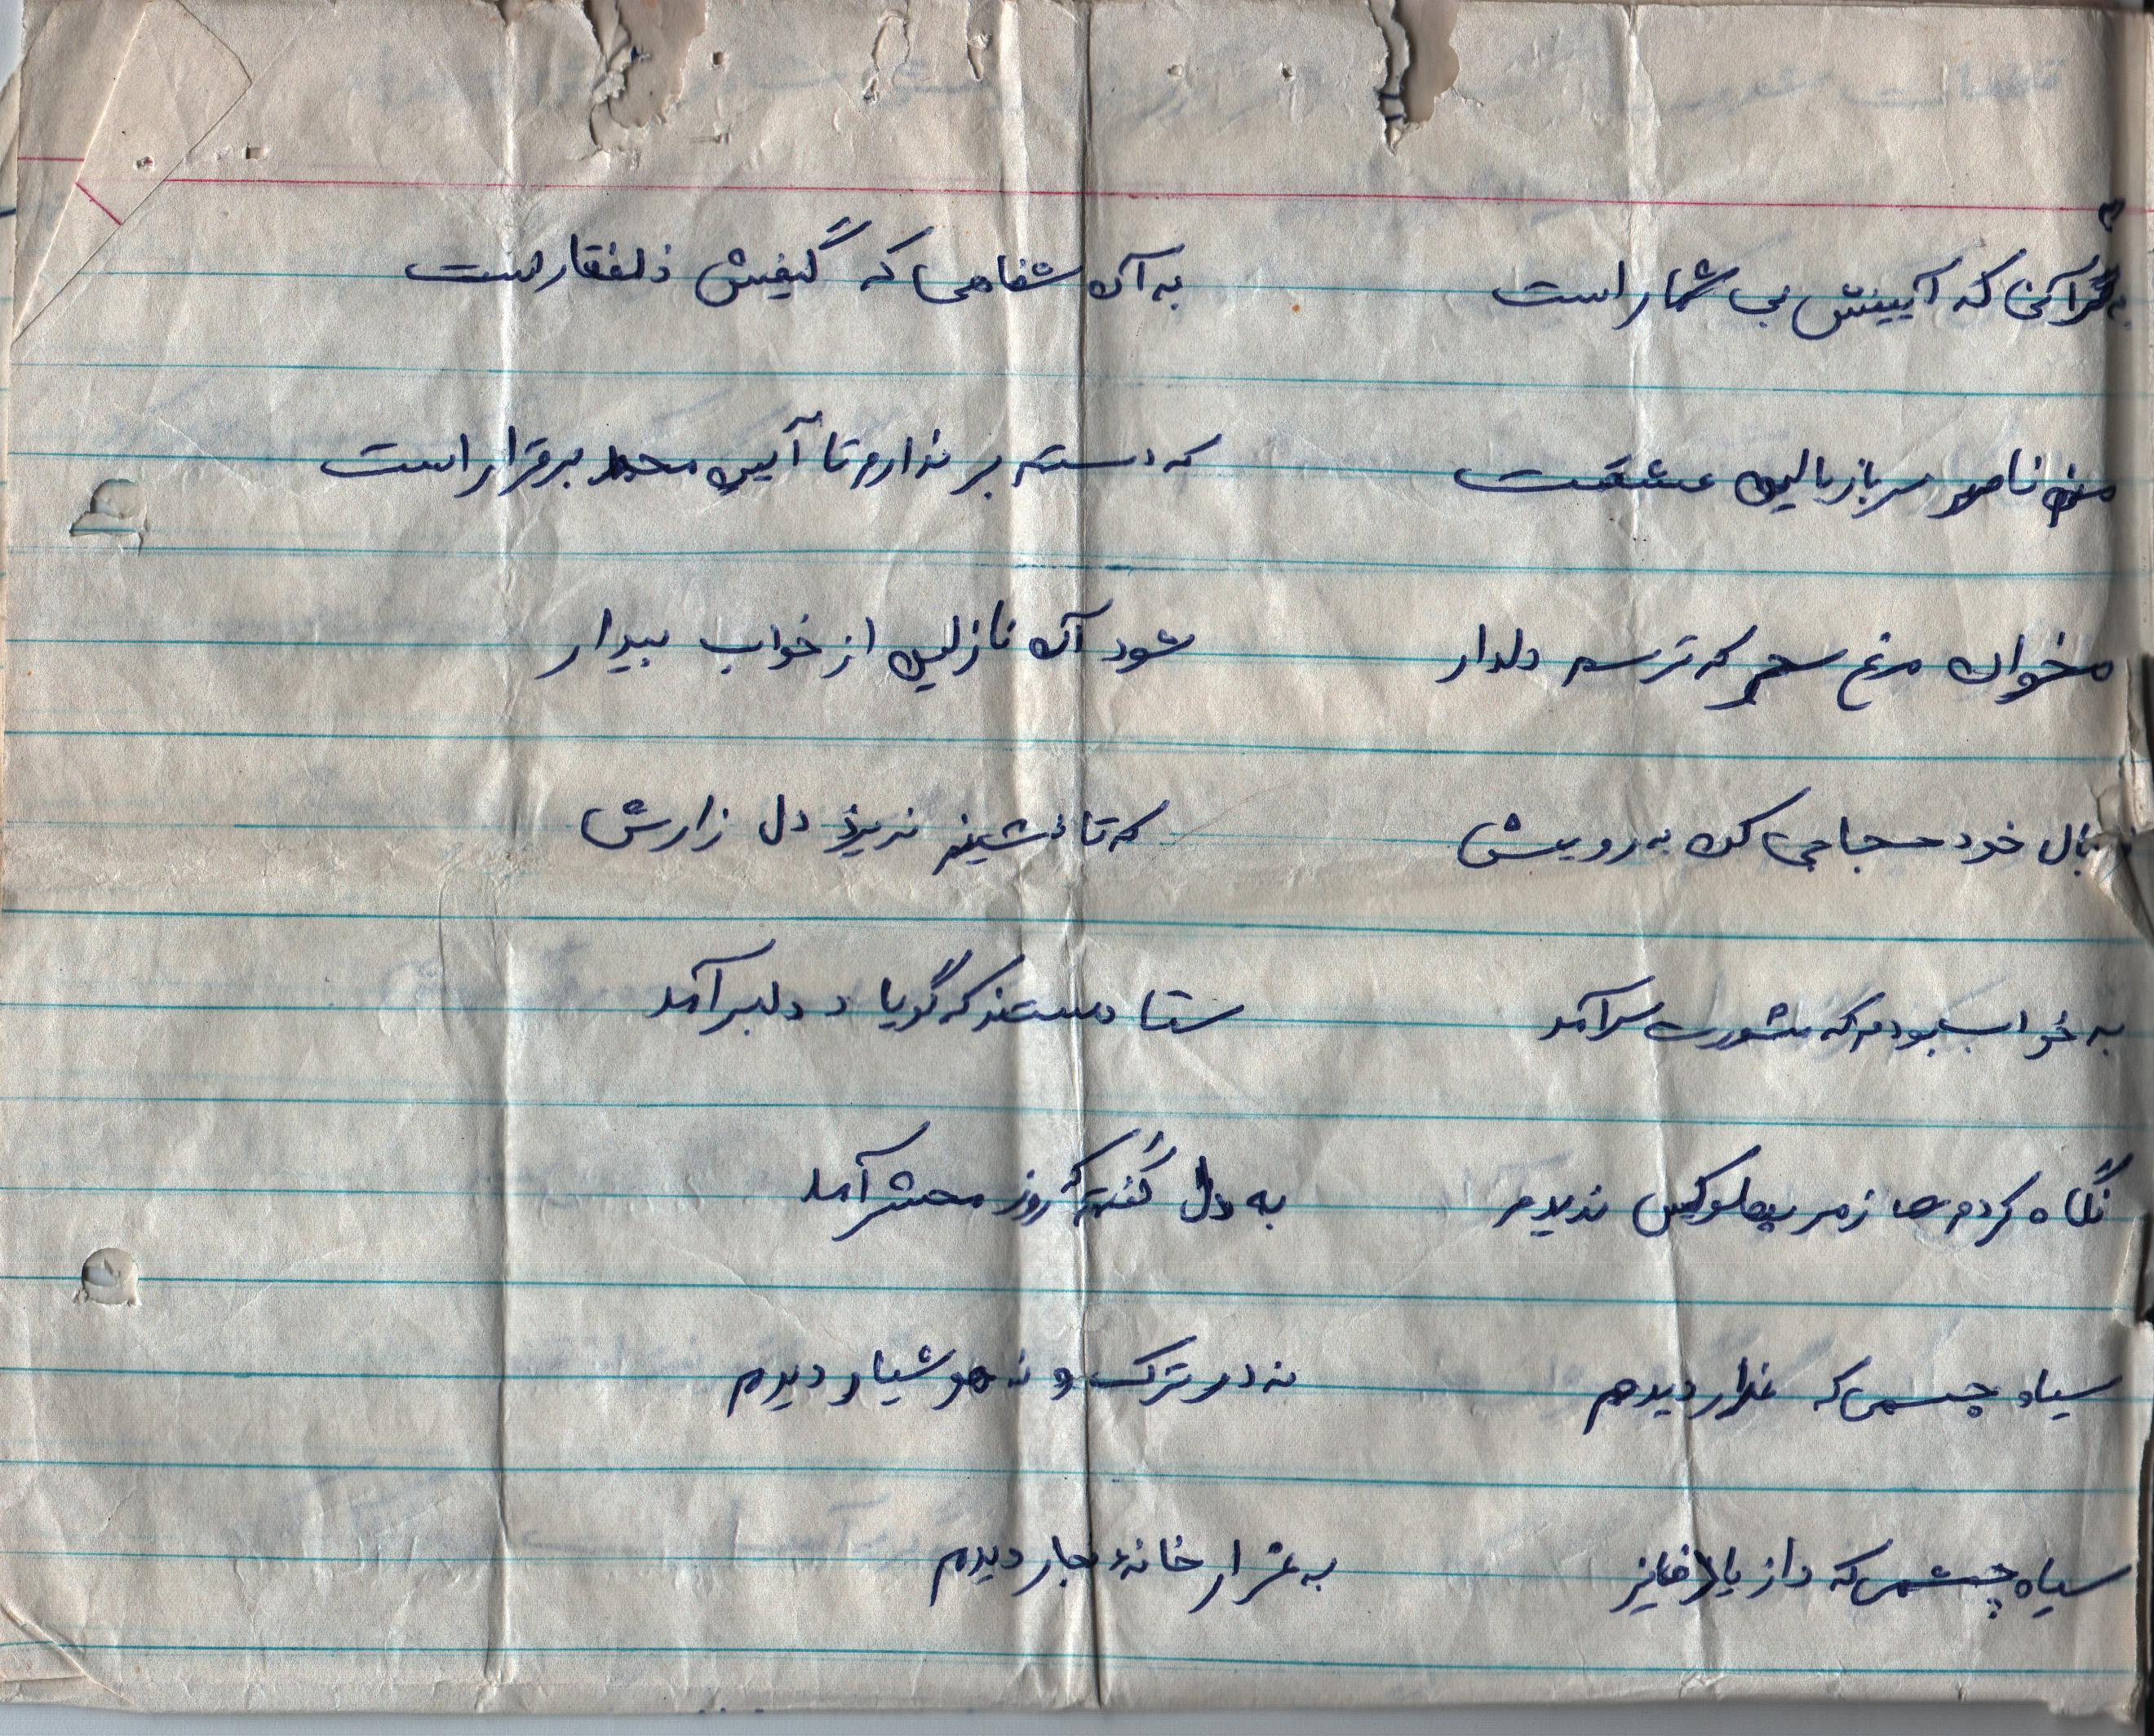 به قرآنی که آیینش بی شمار است به آن شفاهی که گیفیش ذلفقار است
منه نامهر سر باز بالین عشقت که دسته بر ندارم تا آیین محمد برقرار است
مخوان مرغ سحر که ترسم دلدار شود آن نازلین از خواب بیدار
بال خود حجابی کن به رویش که تا نشینه نریزد دل زارش
به خواب بودم که مشورت سرآمد ستا دستند که گویا دلبر آمد
نگاه کردم زمر پهلو کس ندیدم به دل گفته که روز محشر آمد
سیاه چسمی که ندار دیدم نه در ترک و نه هوشیار دیدم
سیاه چشمی که داز یار فایز به خانه جار دیدم